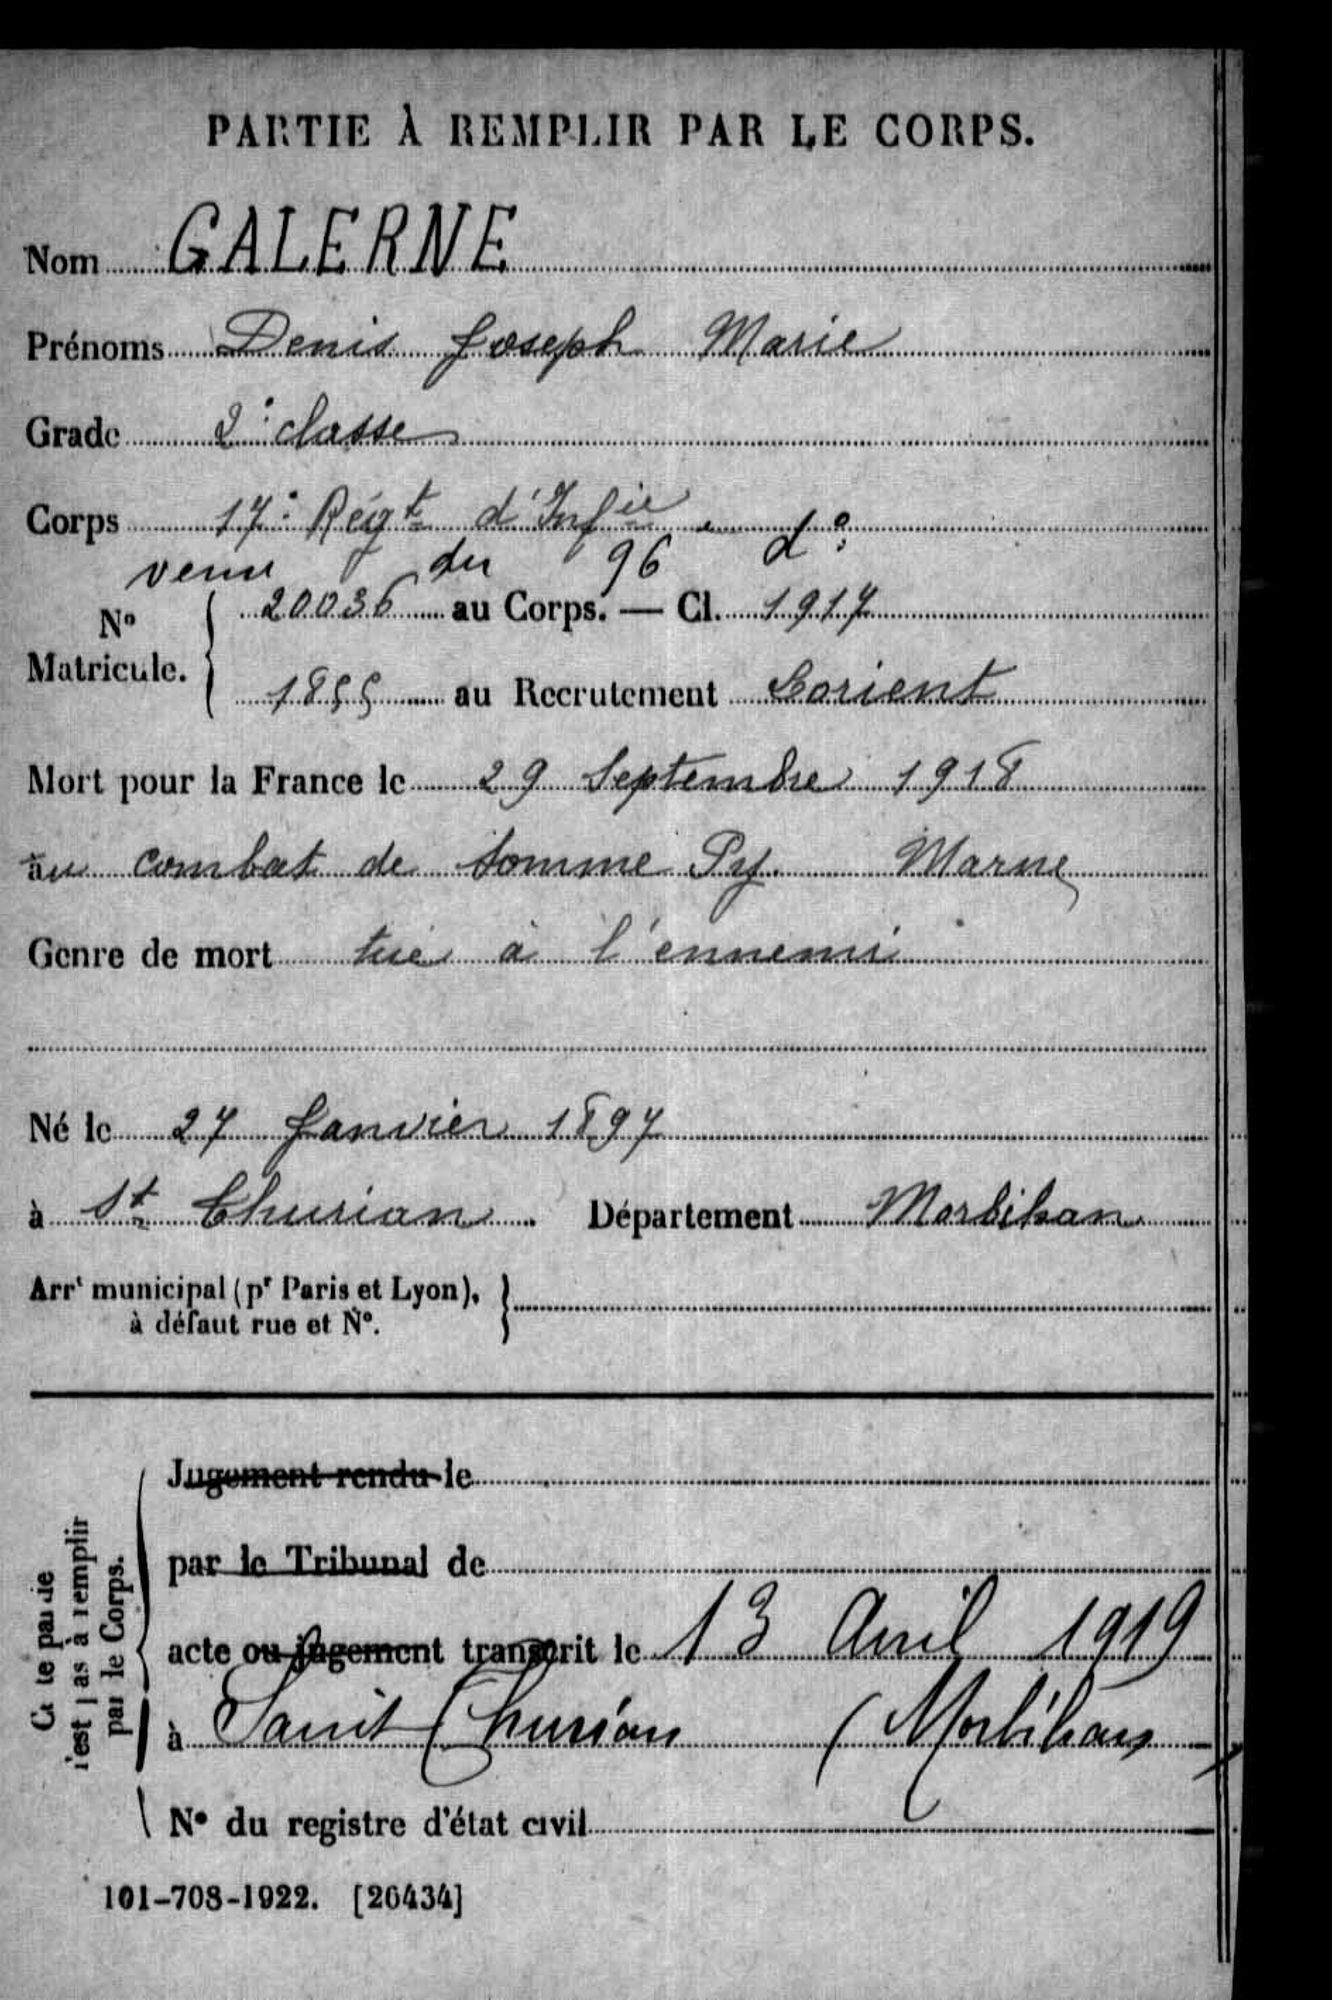 PARTIE À REMPLIR PAR LE CORPS.
Nom GALERNE
Prénoms Denis Joseph Marie
Grade 2e classe
Corps 17e Régt d'Infie
venu du 96 do
No Matricule. 20036 au Corps. — Cl. 1917
1855 au Recrutement Lorient
Mort pour la France le 29 Septembre 1918
au combat de Somme Py. Marne
Genre de mort tué à l'ennemi
Né le 27 Janvier 1897
à St Thurian Département Morbihan
Arrt municipal (pr Paris et Lyon),
à défaut rue et No.
Jugement rendu le
par le Tribunal de
acte ou jugement transcrit le 13 Avril 1919
à Saint Thurian (Morbihan)
No du registre d'état civil
Cette partie
n'est pas à remplir
par le Corps.
101-708-1922. [26434]